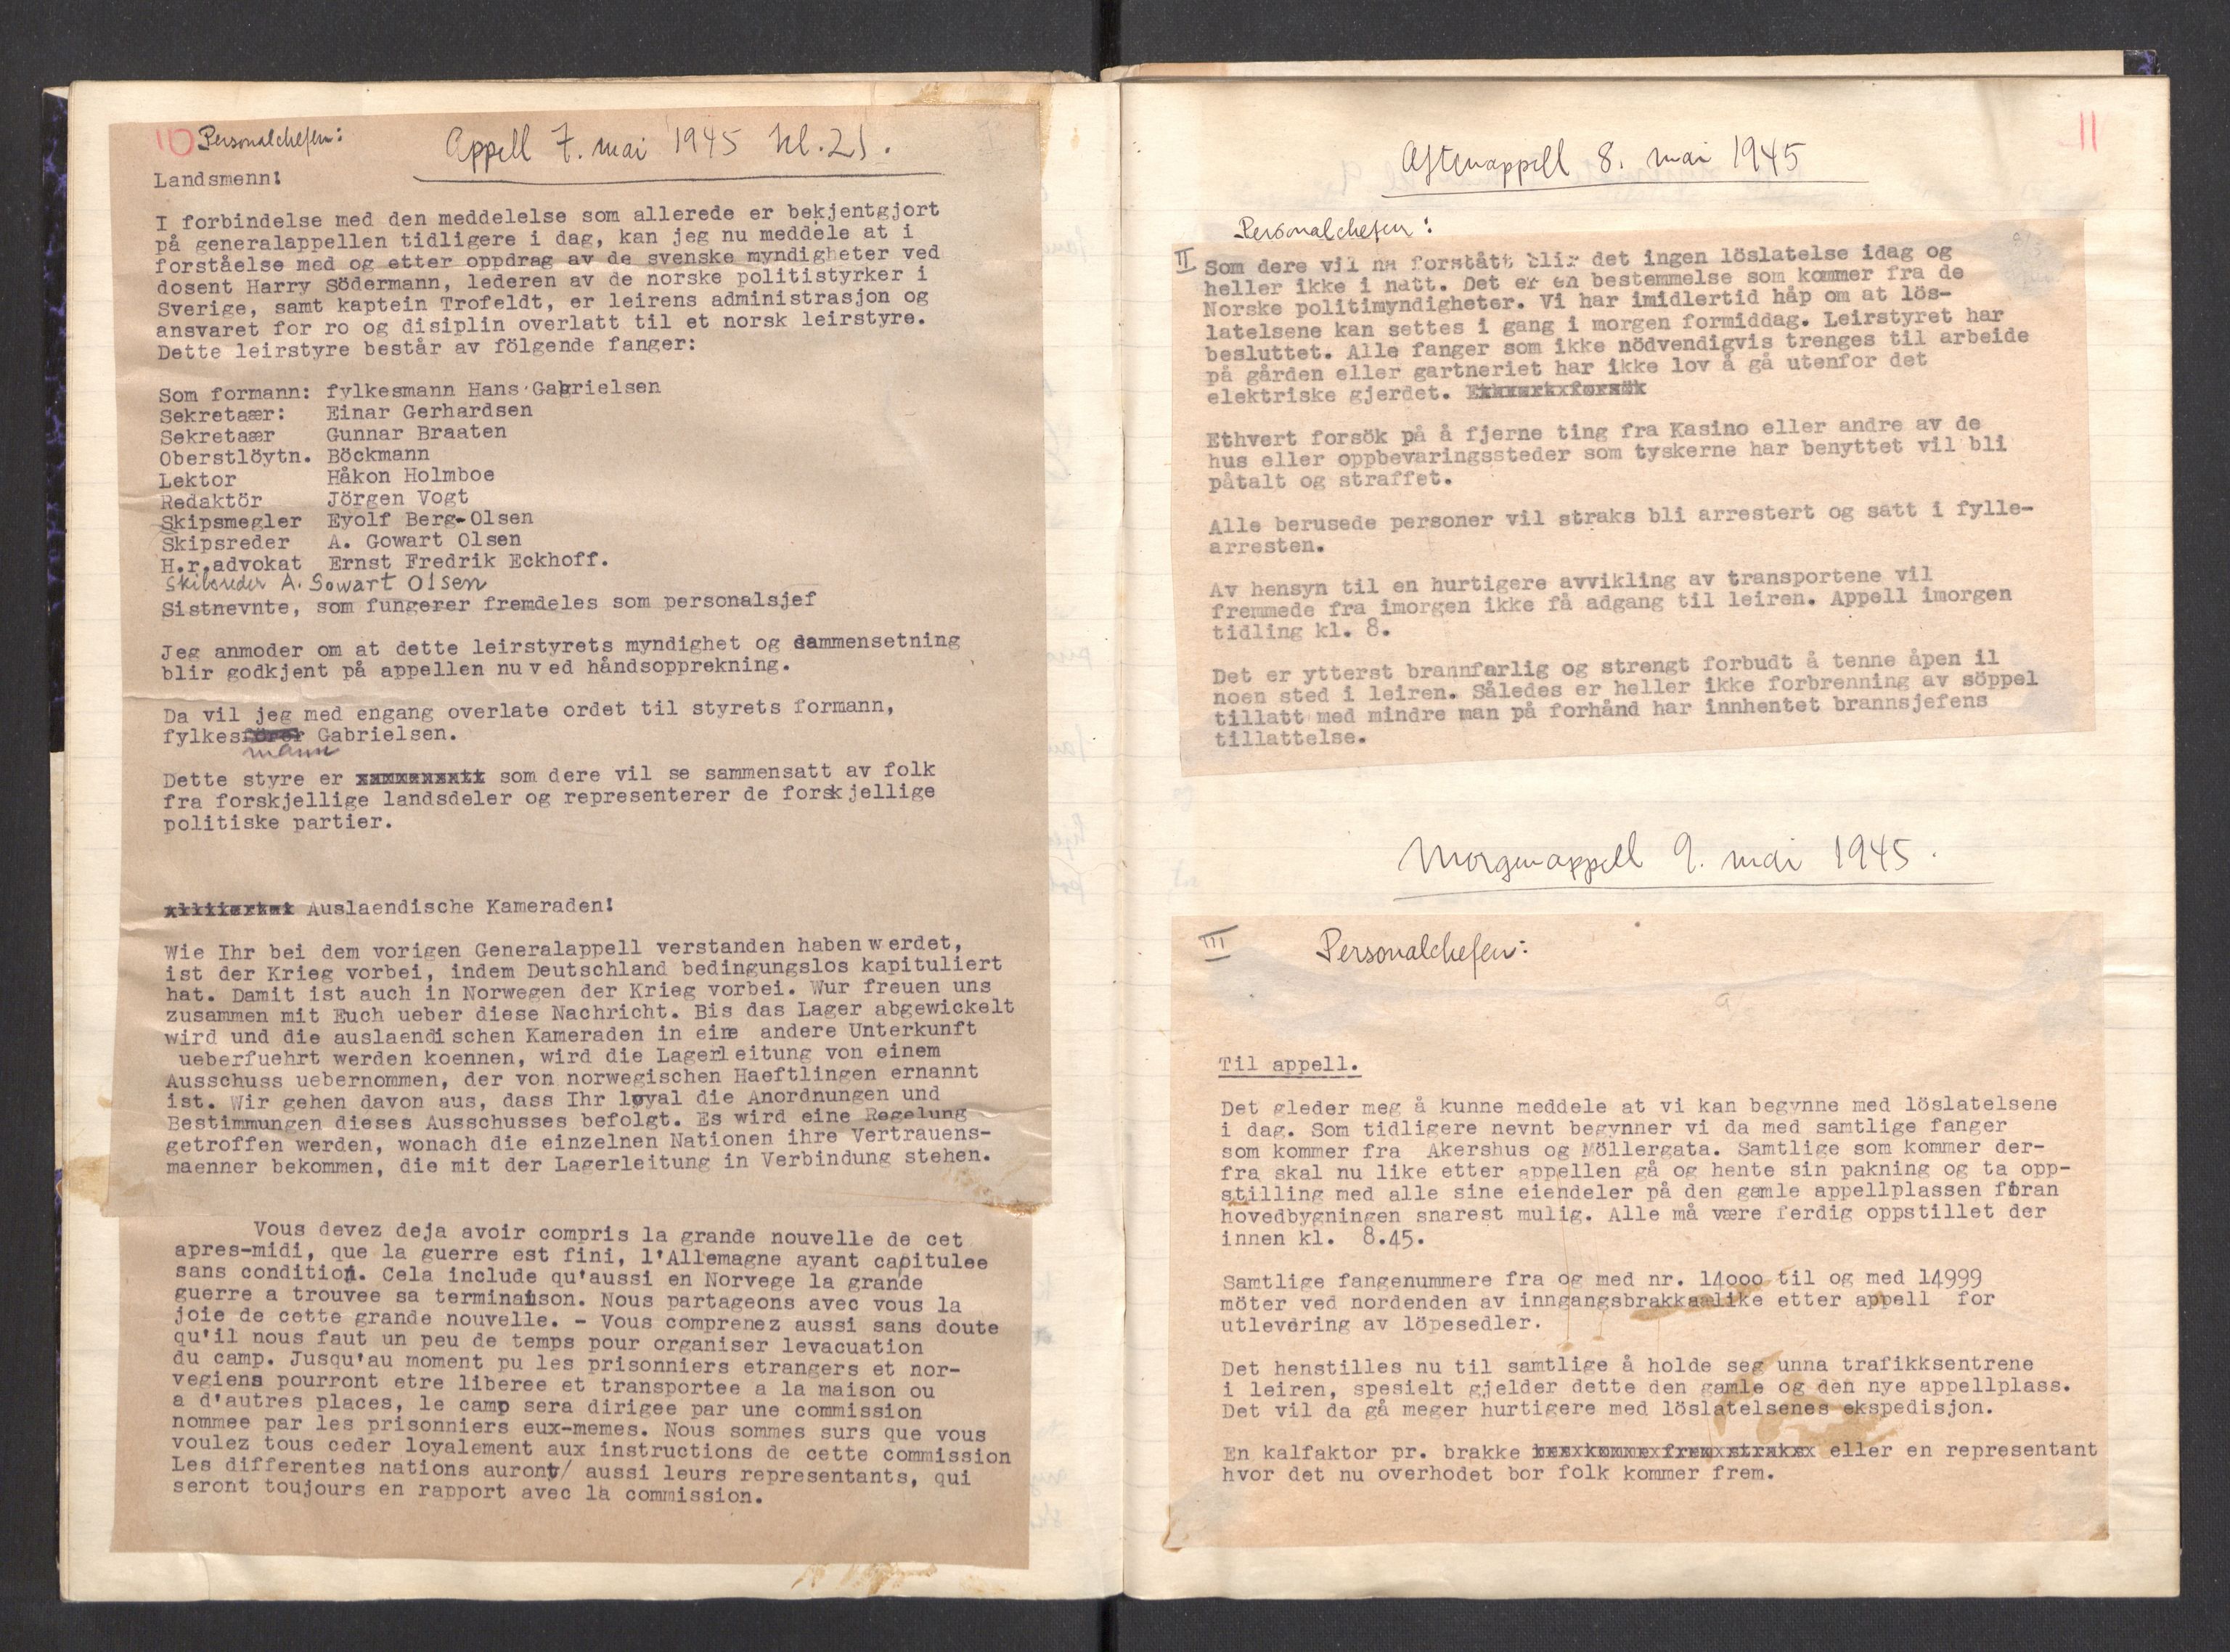 10 Personalchefen:
Appell 7. mai 1945 kl. 21.
Landsmenn!
I forbindelse med den meddelelse som allerede er bekjentgjort
på generalappellen tidligere i dag, kan jeg nu meddele at i
forståelse med og etter oppdrag av de svenske myndigheter ved
dosent Harry Södermann, lederen av de norske politistyrker i
Sverige, samt kaptein Trofeldt, er leirens administrasjon og
ansvaret for ro og disiplin overlatt til et norsk leirstyre.
Dette leirstyre består av fölgende fanger:
Som formann: fylkesmann Hans Gabrielsen
Sekretaær: Einar Gerhardsen
Sekretaær Gunnar Braaten
Oberstlöytn. Böckmann
Lektor Håkon Holmboe
Redaktör Jörgen Vogt
Skipsmegler Eyolf Berg-Olsen
Skipsreder A. Gowart Olsen
H.r.advokat Ernst Fredrik Eckhoff.
Skibsreder A. Gowart Olsen
Sistnevnte, som fungerer fremdeles som personalsjef
Jeg anmoder om at dette leirstyrets myndighet og sammensetning
blir godkjent på appellen nu ved håndsopprekning.
Da vil jeg med engang overlate ordet til styrets formann,
fylkesförer Gabrielsen.
mann
Dette styre er sammensatt som dere vil se sammensatt av folk
fra forskjellige landsdeler og representerer de forskjellige
politiske partier.
Auslaendische Kameraden!
Wie Ihr bei dem vorigen Generalappell verstanden haben werdet,
ist der Krieg vorbei, indem Deutschland bedingungslos kapituliert
hat. Damit ist auch in Norwegen der Krieg vorbei. Wur freuen uns
zusammen mit Euch ueber diese Nachricht. Bis das Lager abgewickelt
wird und die auslaendischen Kameraden in eine andere Unterkunft
ueberfuehrt werden koennen, wird die Lagerleitung von einem
Ausschuss uebernommen, der von norwegischen Haeftlingen ernannt
ist. Wir gehen davon aus, dass Ihr loyal die Anordnungen und
Bestimmungen dieses Ausschusses befolgt. Es wird eine Regelung
getroffen werden, wonach die einzelnen Nationen ihre Vertrauens-
maenner bekommen, die mit der Lagerleitung in Verbindung stehen.
Vous devez deja avoir compris la grande nouvelle de cet
apres-midi, que la guerre est fini, l'Allemagne ayant capitulee
sans condition. Cela include qu'aussi en Norvege la grande
guerre a trouvee sa terminaison. Nous partageons avec vous la
joie de cette grande nouvelle. - Vous comprenez aussi sans doute
qu'il nous faut un peu de temps pour organiser levacuation
du camp. Jusqu'au moment pu les prisonniers etrangers et nor-
vegiens pourront etre liberee et transportee a la maison ou
a d'autres places, le camp sera dirigee par une commission
nommee par les prisonniers eux-memes. Nous sommes surs que vous
voulez tous ceder loyalement aux instructions de cette commission
Les differentes nations auront/ aussi leurs representants, qui
seront toujours en rapport avec la commission.
11
Aftenappell 8. mai 1945
Personalchefen:
II
Som dere vil ha forstått blir det ingen löslatelse idag og
heller ikke i natt. Det er en bestemmelse som kommer fra de
Norske politimyndigheter. Vi har imidlertid håp om at lös-
latelsene kan settes i gang i morgen formiddag. Leirstyret har
besluttet. Alle fanger som ikke nödvendigvis trenges til arbeide
på gården eller gartneriet har ikke lov å gå utenfor det
elektriske gjerdet. Ethvert forsök
Ethvert forsök på å fjerne ting fra Kasino eller andre av de
hus eller oppbevaringssteder som tyskerne har benyttet vil bli
påtalt og straffet.
Alle berusede personer vil straks bli arrestert og satt i fylle-
arresten.
Av hensyn til en hurtigere avvikling av transportene vil
fremmede fra imorgen ikke få adgang til leiren. Appell imorgen
tidling kl. 8.
Det er ytterst brannfarlig og strengt forbudt å tenne åpen il
noen sted i leiren. Således er heller ikke forbrenning av söppel
tillatt med mindre man på forhånd har innhentet brannsjefens
tillattelse.
Morgenappell 9. mai 1945.
III Personalchefen:
Til appell.
Det gleder meg å kunne meddele at vi kan begynne med löslatelsene
i dag. Som tidligere nevnt begynner vi da med samtlige fanger
som kommer fra Akershus og Möllergata. Samtlige som kommer der-
fra skal nu like etter appellen gå og hente sin pakning og ta opp-
stilling med alle sine eiendeler på den gamle appellplassen foran
hovedbygningen snarest mulig. Alle må være ferdig oppstillet der
innen kl. 8.45.
Samtlige fangenummere fra og med nr. 14000 til og med 14999
möter ved nordenden av inngangsbrakkaalike etter appell for
utlevering av löpesedler.
Det henstilles nu til samtlige å holde seg unna trafikksentrene
i leiren, spesielt gjelder dette den gamle og den nye appellplass.
Det vil da gå meger hurtigere med löslatelsenes ekspedisjon.
En kalfaktor pr. brakke bes komme frem straks eller en representant
hvor det nu overhodet bor folk kommer frem.